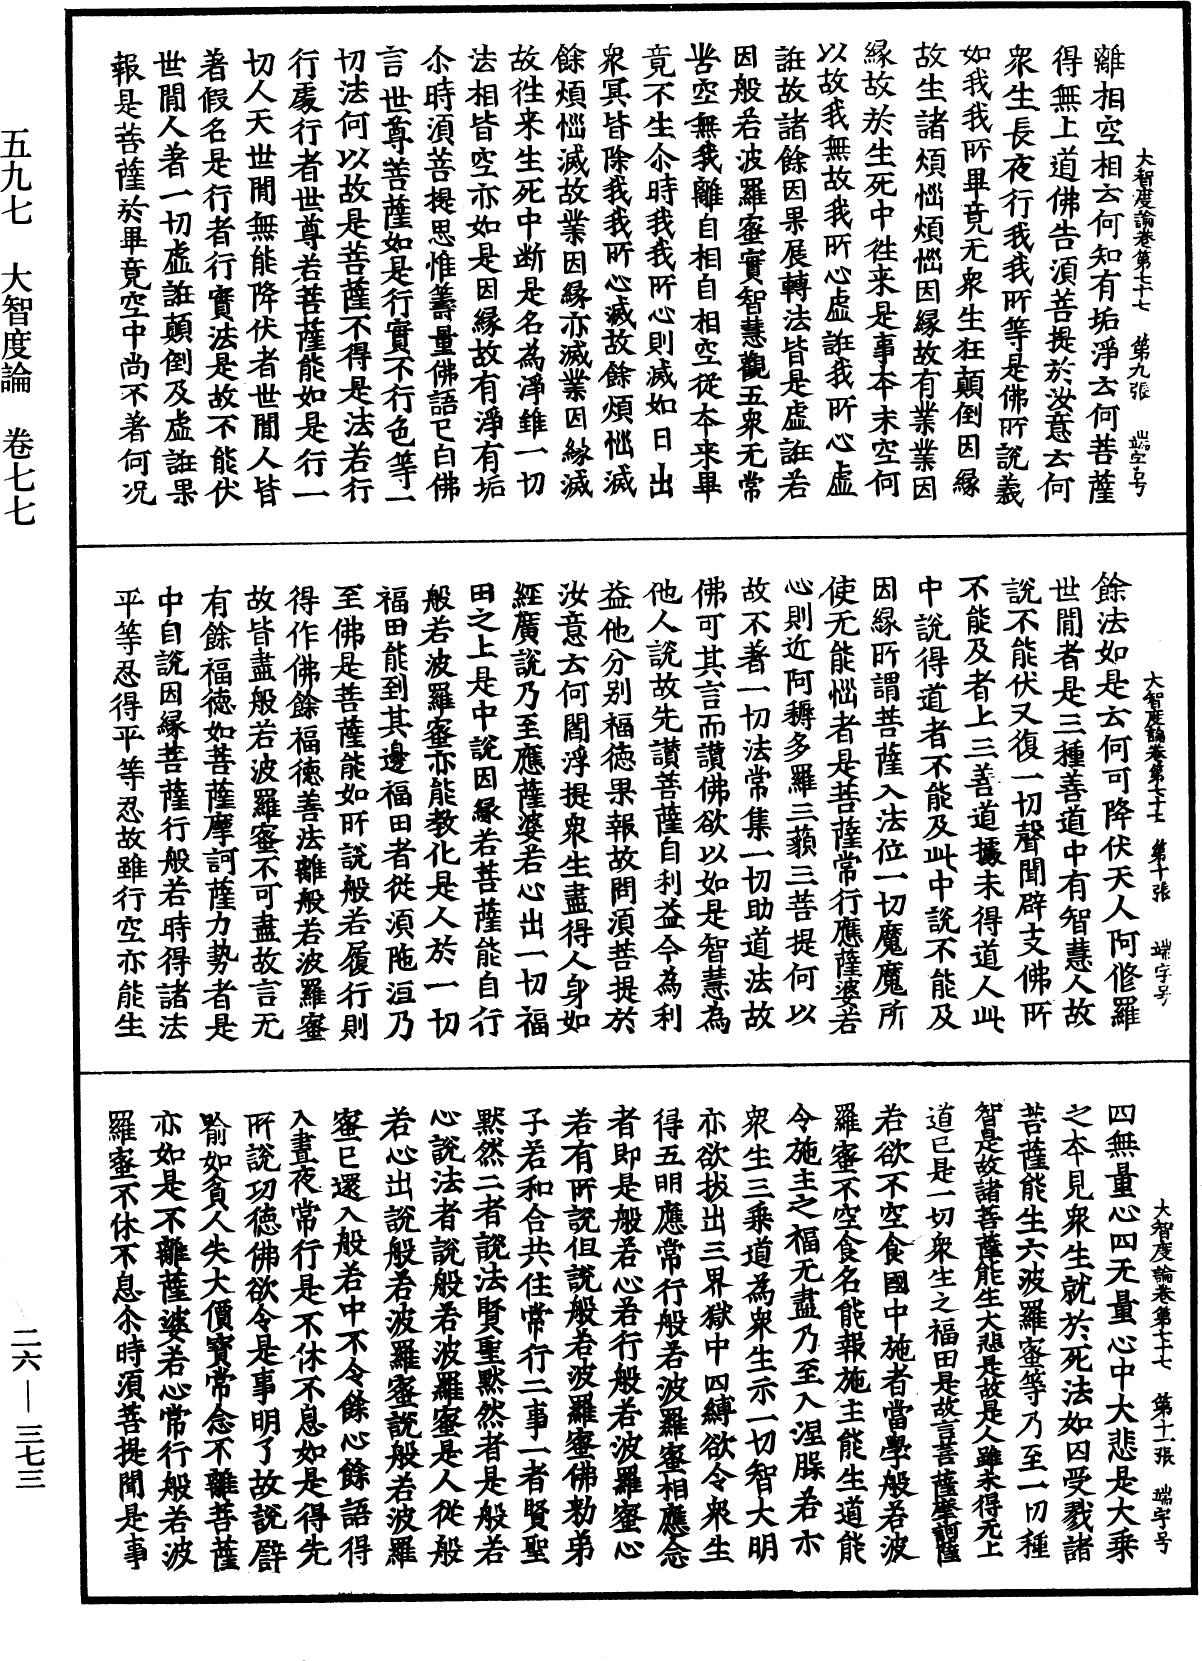 大智度論卷第七十七 第九張 端字号
離相空相云何知有垢淨云何菩薩
得無上道佛告湏菩提於汝意云何
衆生長夜行我我所等是佛所說義
如我我所畢竟无衆生狂顛倒因緣
故生諸煩惱煩惱因緣故有業業因
緣故於生死中徃来是事本末空何
以故我無故我所心虛誑我所心虛
誑故諸餘因果展轉法皆是虛誑若
因般若波羅蜜實智慧觀五衆无常
苦空無我離自相自相空從本来畢
竟不生尒時我我所心則滅如日出
衆冥皆除我我所心滅故餘煩惱滅
餘煩惱滅故業因緣亦滅業因緣滅
故徃来生死中断是名為淨雖一切
法相皆空亦如是因緣故有淨有垢
尒時湏菩提思惟籌量佛語已白佛
言世尊菩薩如是行實不行色等一
切法何以故是菩薩不得是法若行
行處行者世尊若菩薩能如是行一
切人天世閒無能降伏者世閒人皆
著假名是行者行實法是故不能伏
世閒人著一切虛誑顛倒及虛誑果
報是菩薩於畢竟空中尚不著何况
大智度論卷第七十七 第十張 端字号
餘法如是云何可降伏天人阿修羅
世閒者是三種善道中有智慧人故
說不能伏又復一切聲聞辟支佛所
不能及者上三善道據未得道人此
中說得道者不能及此中說不能及
因緣所謂菩薩入法位一切魔魔所
使无能惱者是菩薩常行應薩婆若
心則近阿耨多羅三藐三菩提何以
故不著一切法常集一切助道法故
佛可其言而讃佛欲以如是智慧為
他人說故先讃菩薩自利益今為利
益他分别福徳果報故問湏菩提於
汝意云何閻浮提衆生盡得人身如
經廣說乃至應薩婆若心出一切福
田之上是中說因緣若菩薩能自行
般若波羅蜜亦能教化是人於一切
福田能到其邊福田者從湏陁洹乃
至佛是菩薩能如所說般若履行則
得作佛餘福徳善法離般若波羅蜜
故皆盡般若波羅蜜不可盡故言无
有餘福徳如菩薩摩訶薩力勢者是
中自說因緣菩薩行般若時得諸法
平等忍得平等忍故雖行空亦能生
大智度論卷第七十七 第十一張 端字号
四無量心四无量心中大悲是大乘
之本見衆生就於死法如囚受戮諸
菩薩能生六波羅蜜等乃至一切種
智是故諸菩薩能生大悲是故是人雖未得无上
道已是一切衆生之福田是故言菩薩摩訶薩
若欲不空食國中施者當學般若波
羅蜜不空食名能報施主能生道能
令施主之福无盡乃至入涅槃若亦
衆生三乗道為衆生示一切智大明
亦欲拔出三界獄中四縛欲令衆生
得五明應常行般若波羅蜜相應念
者即是般若心若行般若波羅蜜心
若有所說但說般若波羅蜜佛勑弟
子若和合共住常行二事一者賢聖
默然二者說法賢聖默然者是般若
心說法者說般若波羅蜜是人從般
若心出說般若波羅蜜說般若波羅
蜜已還入般若中不令餘心餘語得
入晝夜常行是不休不息如是得先
所說功徳佛欲令是事明了故說辟
喻如貧人失大價寶常念不離菩薩
亦如是不離薩婆若心常行般若波
羅蜜不休不息尒時湏菩提聞是事
五九七 大智度論 卷七七
二六—三七三